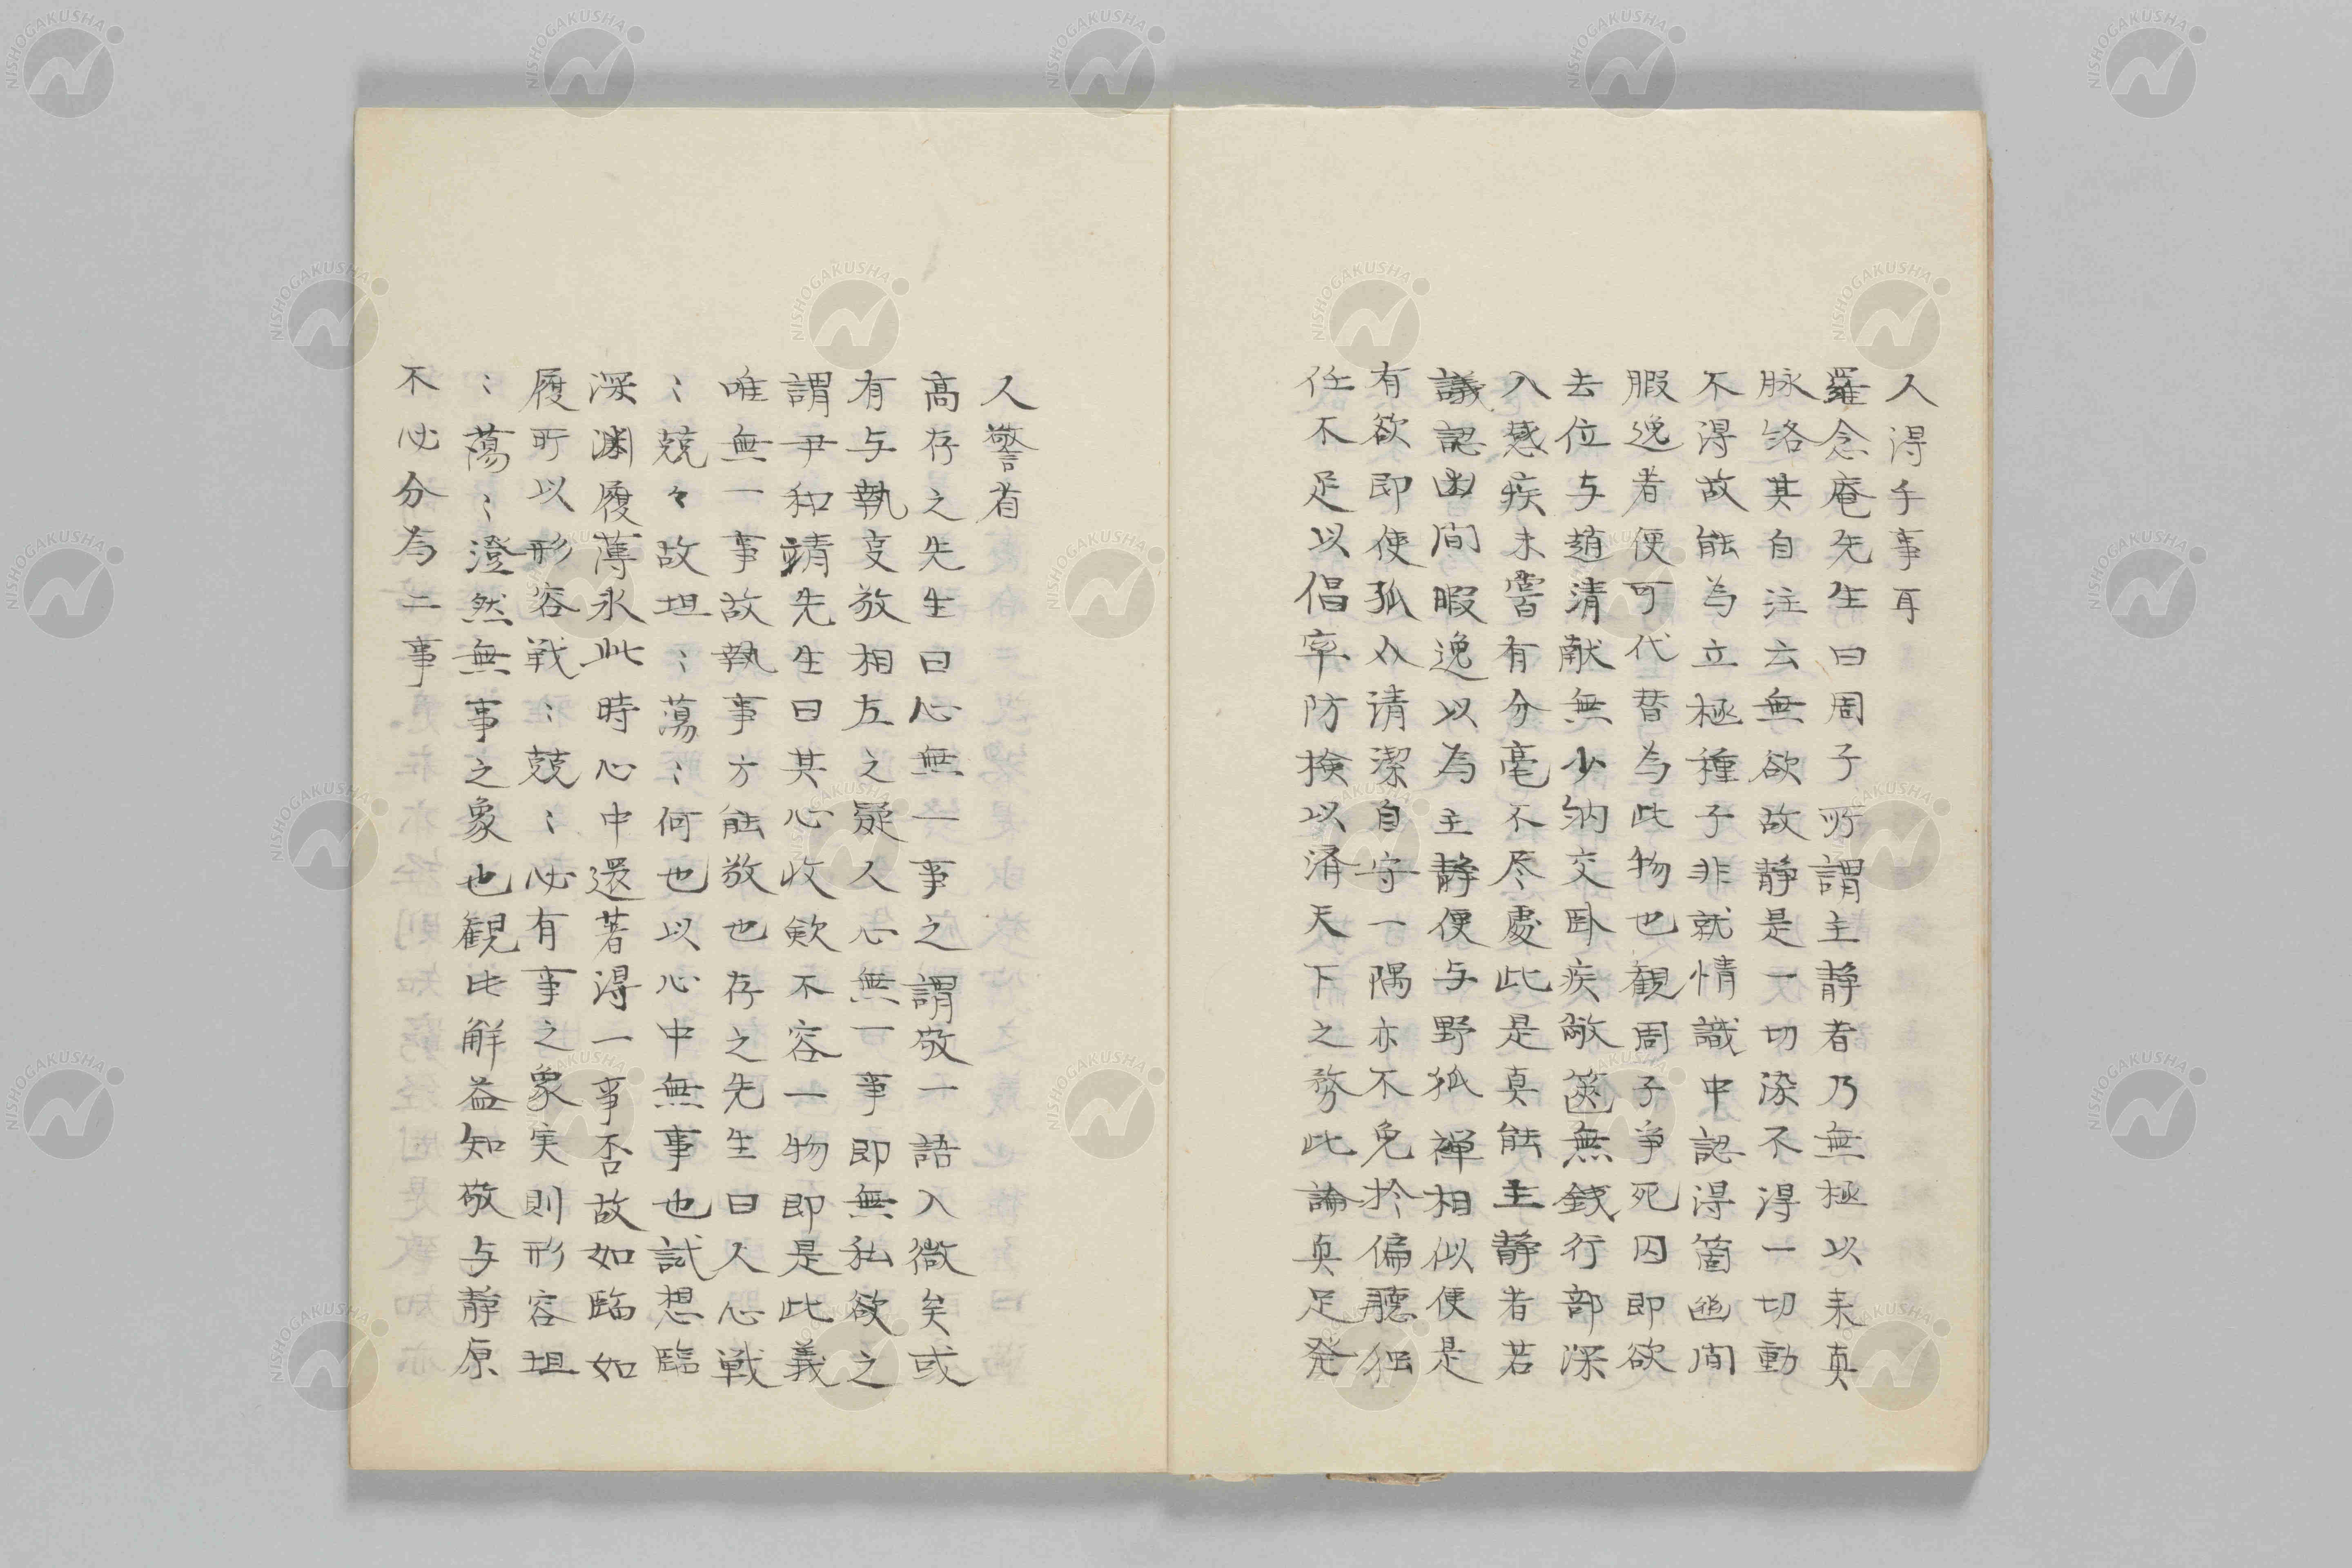 人得手事耳
羅念庵先生曰周子所謂主静者乃無極以来真
脉絡其自注云無欲故静是一切染不得一切動
不得故能為立極種子非就情識中認得箇幽閒
暇逸者便可代替為此物也観周子争死囚即欲
去位与趙清献無少納交卧疾敝篋無銭行部深
入感疾未嘗有分毫不尽處此是真能主静者若
議認幽間暇逸以為主静便与野狐禅相似便是
有欲即使孤介清潔自守一隅亦不免於偏聴独
任不足以倡率防検以済天下之務此論真足発
人警省
高存之先生曰心無一事之謂敬一語入微矣或
有与執事敬相左之疑人心無一事即無私欲之
謂尹和靖先生曰其心收斂不容一物即是此義
唯無一事故執事方能敬也存之先生曰人心戦
〻兢々故坦〻蕩〻何也以心中無事也試想臨
深淵履薄氷此時心中還著得一事否故如臨如
履所以形容戦〻兢〻必有事之象実則形容坦
〻蕩〻澄然無事之象也観此解益知敬与静原
不必分為二事